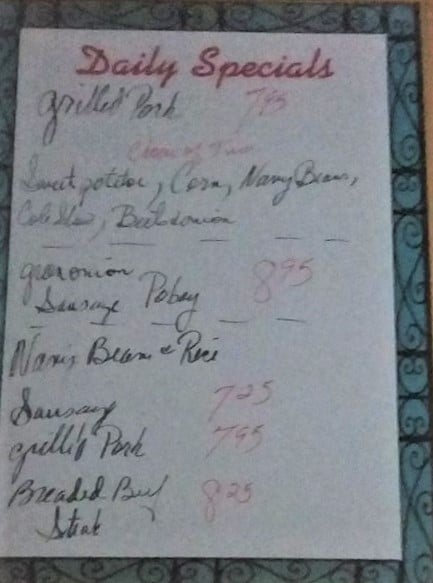 Daily Specials
Grilled Pork 7 95
Choice of Two
Sweet potatoe, Corn, Navy Beans,
Cole Slaw, Beets & onion
green onion
Sausage Poboy 8 95
Navy Beans & Rice
Sausage 7 25
Grilled Pork 7 95
Breaded Beef 8 25
Steak